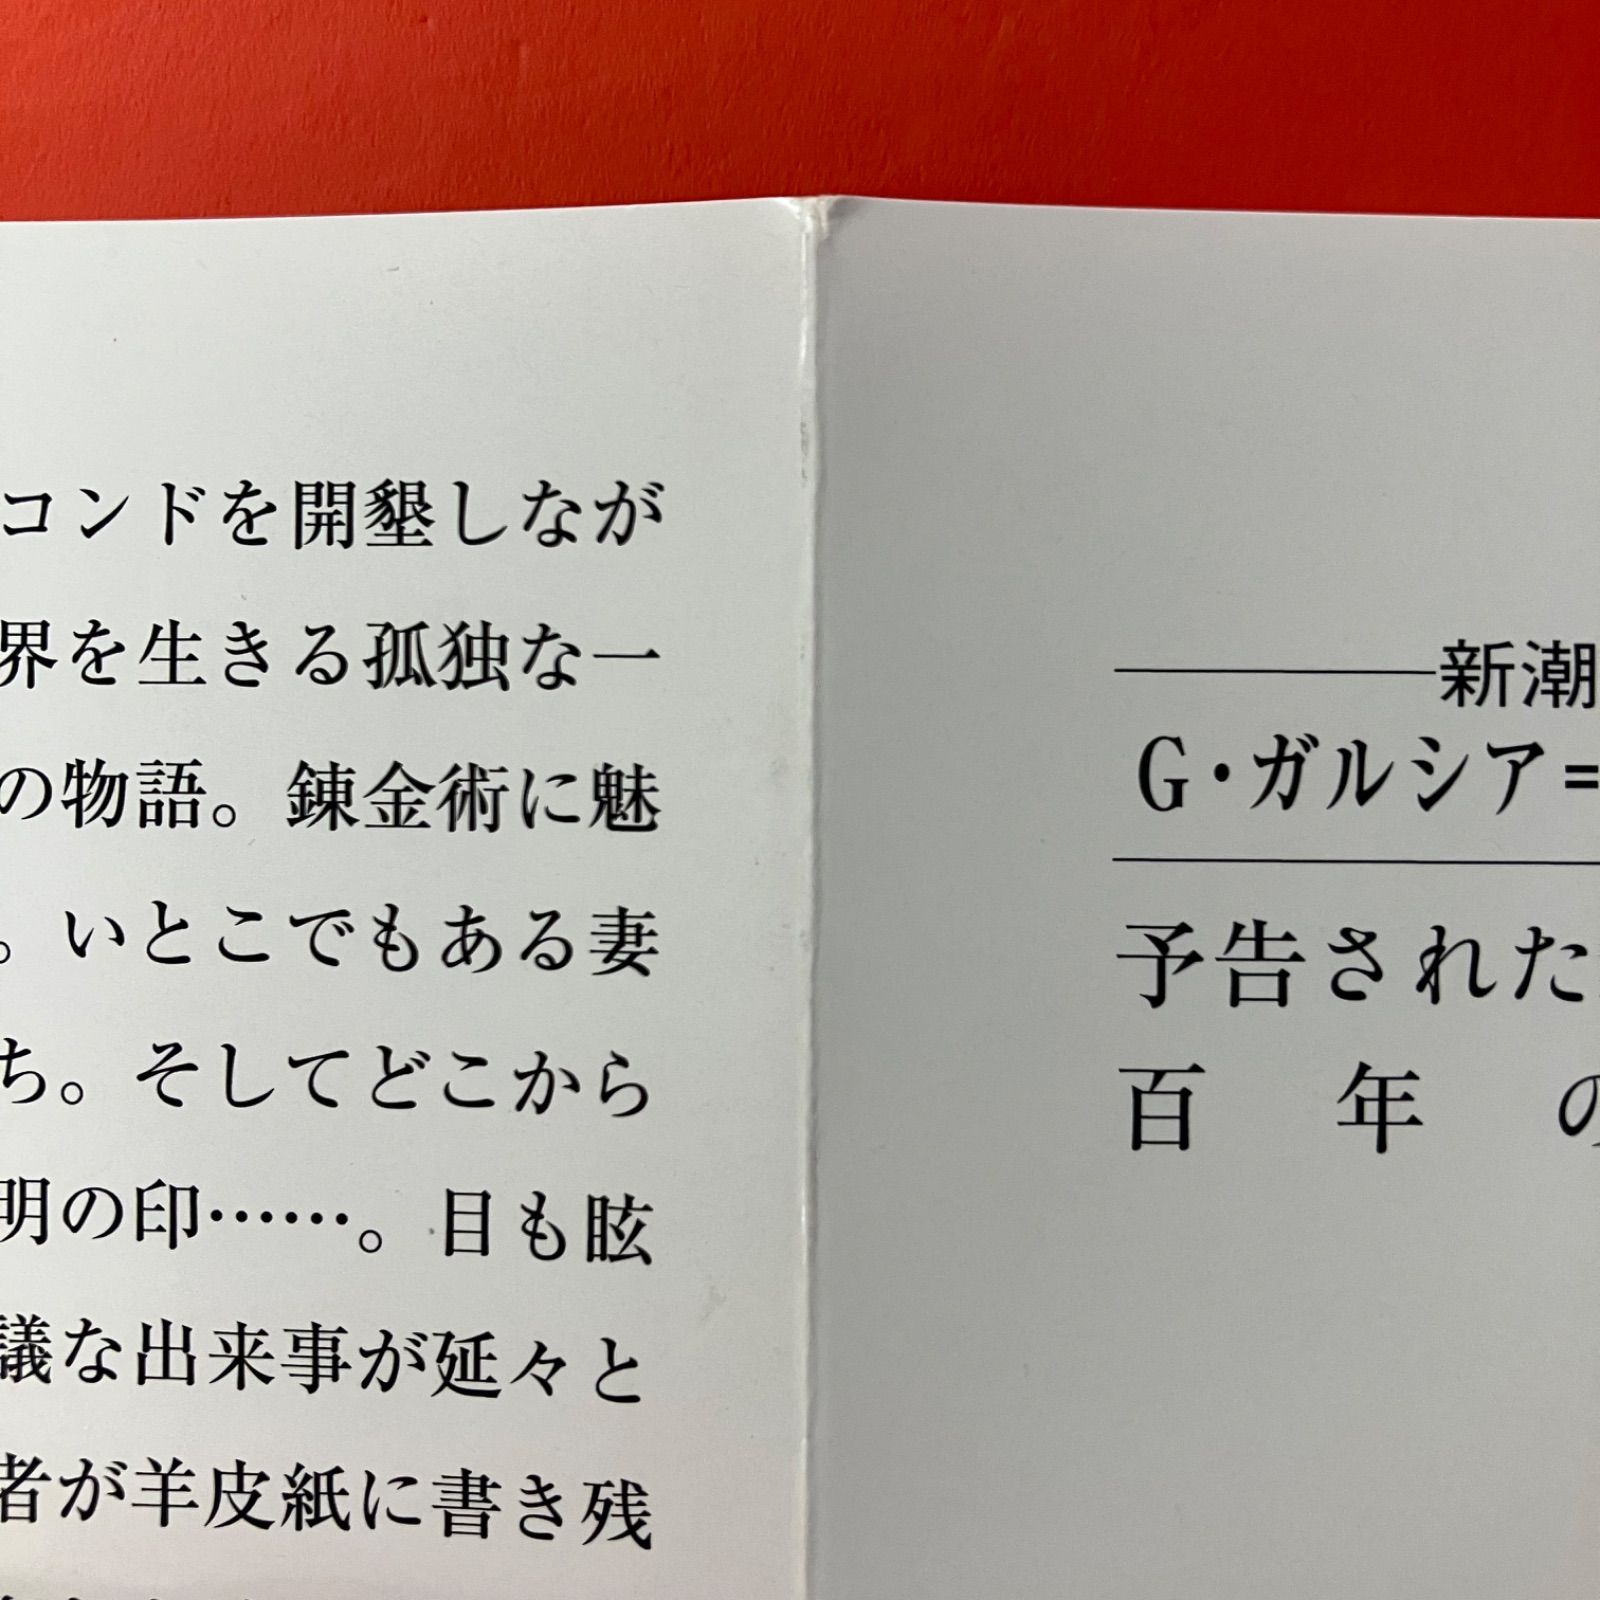 コンドを開墾しなが
界を生きる孤独な一
の物語。錬金術に魅
。いとこでもある妻
ち。そしてどこから
明の印……。目も眩
議な出来事が延々と
者が羊皮紙に書き残
新潮
G・ガルシア=
予告された
百年の